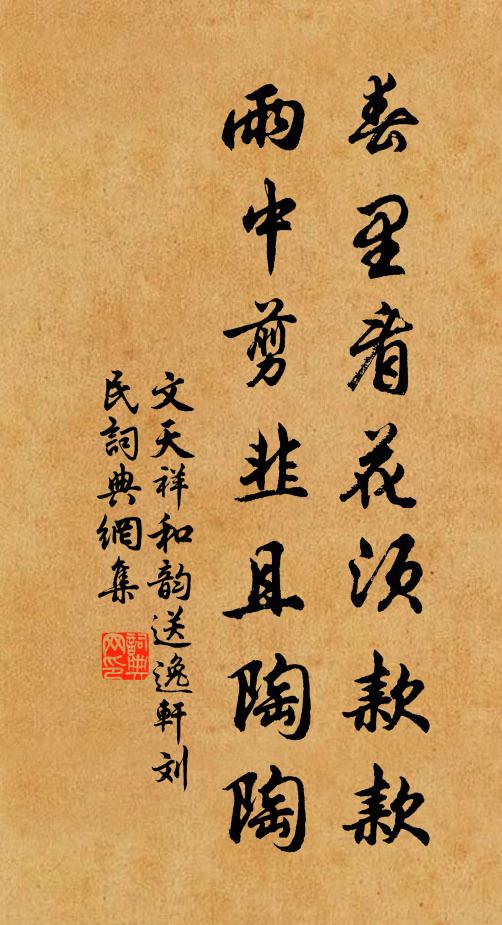 春里看花须款款
雨中剪韭且陶陶
文天祥和韵送逸軒刘
民詞典網集
詞典网印